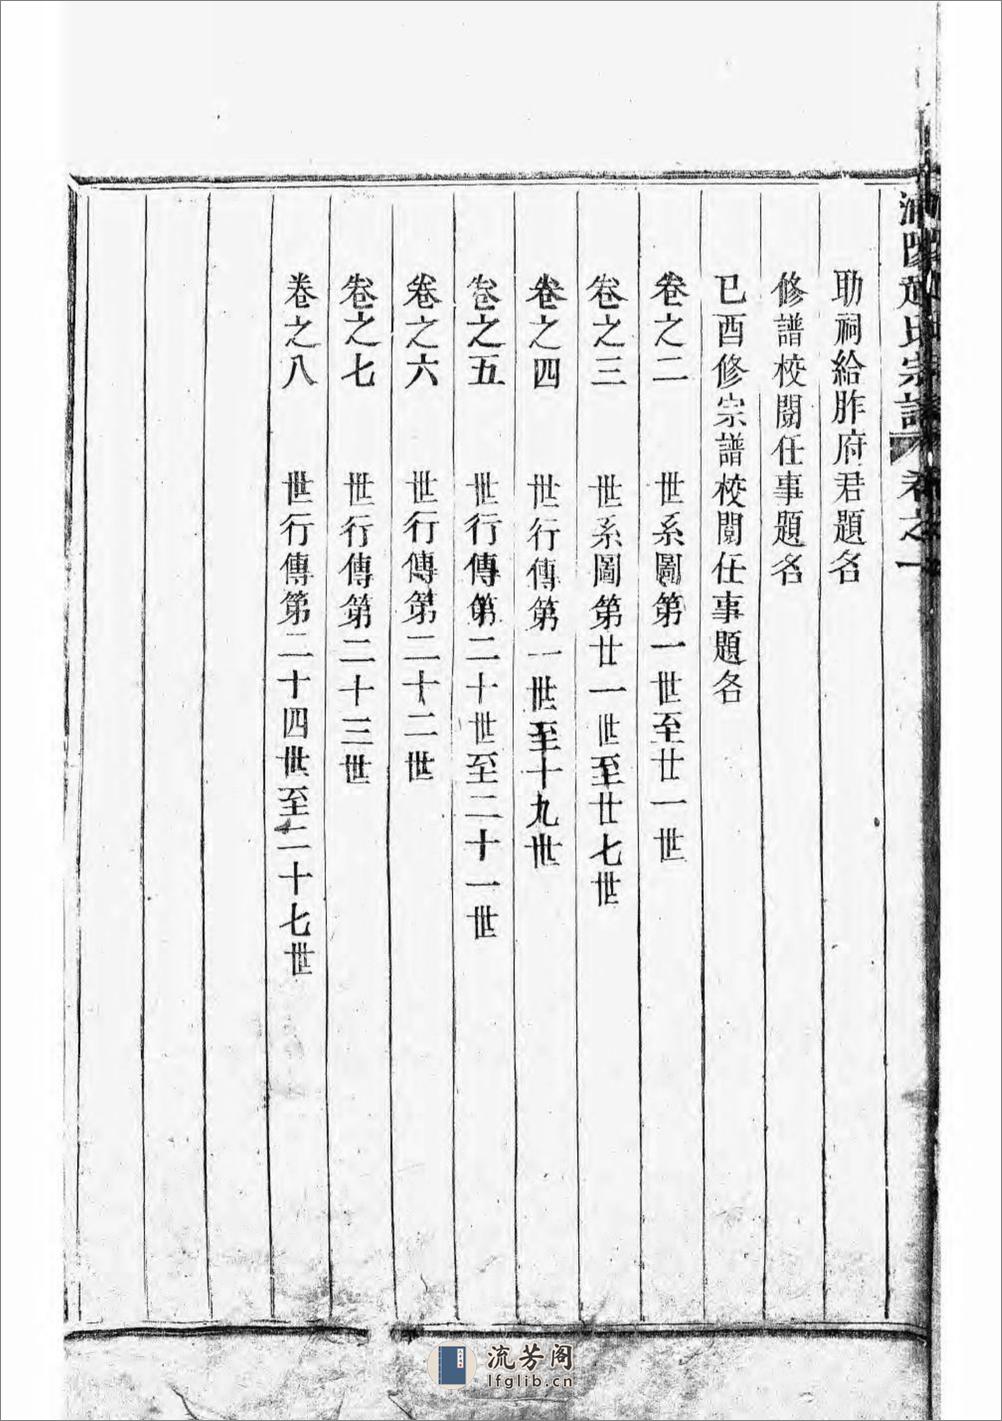 助祠給胙府君題名
修譜校閱任事題名
已酉修宗譜校閱任事題名
卷之二 世系圖第一世至廿一世
卷之三 世系圖第廿一世至廿七世
卷之四 世行傳第一世至十九世
卷之五 世行傳第二十世至二十一世
卷之六 世行傳第二十二世
卷之七 世行傳第二十三世
卷之八 世行傳第二十四世至二十七世
氏宗譜 卷之一
流芳阁
lfglib.cn